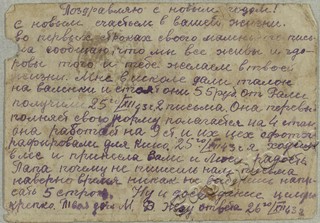 Поздравляю с новым годом!
С новым счастьем в вашей жизни.
Во первых строках своего
сообщаю, что мы все живы и здо-
ровы того и тебе желаем в твоей
жизни. Мне в школе дали талон
на валенки и стоят они 55 руб. От Вали
получили 25го XII 43г. 2 письма. Она перевы-
полняет свою норму полагается на
она работает на и их цех сфотог-
рафировали для кино 25го XII 43г. я ходила
в лес и принесла Вали и радость
Папа почему не пишешь нам письма
наверно время нет
5 строк. Ну и до свидания целую
крепко. Твоя дочь М. В. Жду ответа 28го XII 43г.